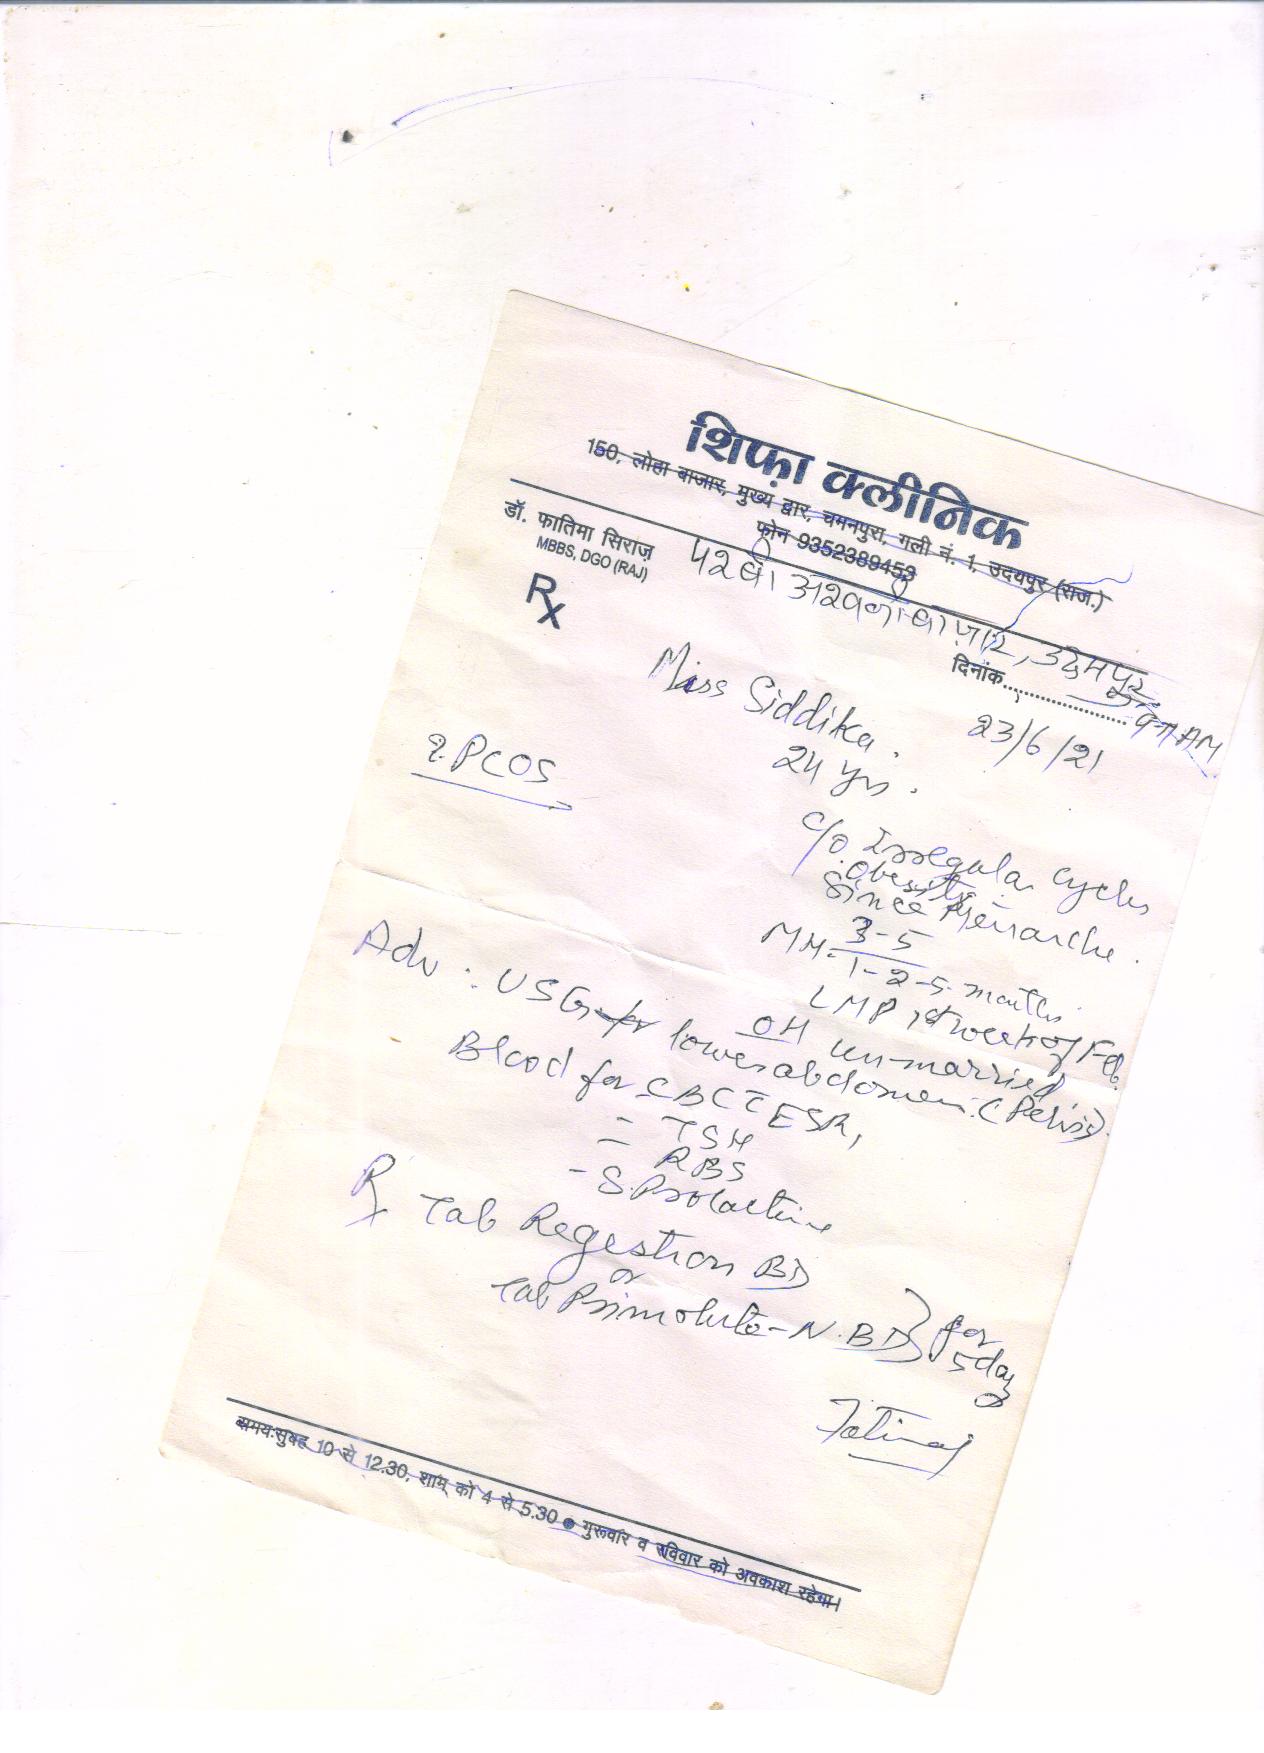 शिफ़ा क्लीनिक
150, लोहा बाजार, मुख्य द्वार, चमनपुरा, गली नं. 1, उदयपुर (राज.)
फोन 9352389453
डॉ. फातिमा सिराज़
MBBS, DGO (RAJ)
Rx
दिनांक
23/6/21
Miss Siddika.
24 yrs.
?. PCOS
c/o Irregular cycles
obesity
since Menarche.
MH - 3-5
1-2-5 months
LMP 1st week of Feb.
OH un-married
Adv: USG for lower abdomen. (Pelvis).
Blood for CBC c̄ ESR,
= TSH
RBS
- S. Prolactine
Rx Tab Regestron BD
or
Tab Primolute-N. BD } for
5 days
Fatima
समय:सुबह 10 से 12.30, शाम् को 4 से 5.30 ● गुरूवार व रविवार को अवकाश रहेगा।